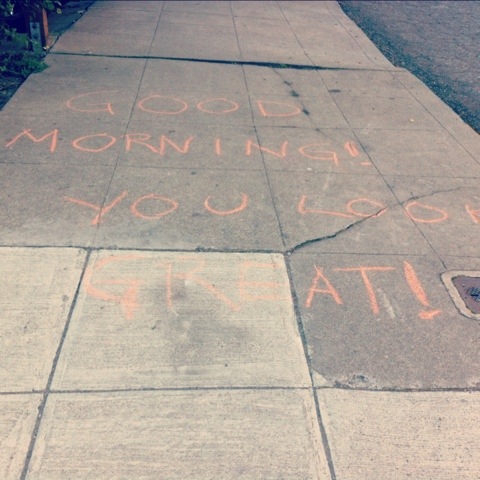 GOOD
MORNING!
YOU LOOK
GREAT!